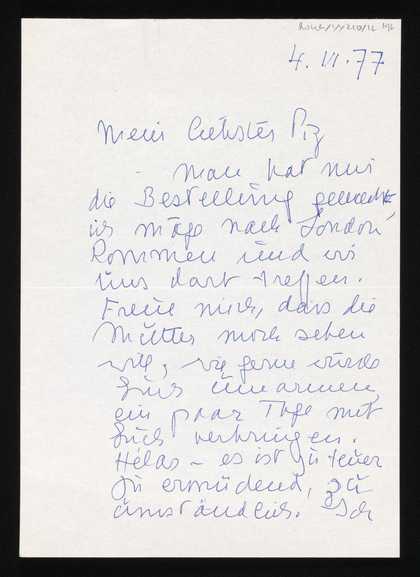 4. VI. 77
Mein liebster Piz
Man hat mir
die Bestellung gemacht
ich möge nach London
kommen und wir
uns dort treffen.
Freue mich, dass die
Mutter mich sehen
will, wie gerne würde
Euch umarmen,
ein paar Tage mit
Euch verbringen.
Hélas – es ist zu teuer
zu ermüdend, zu
umständlich. Ich